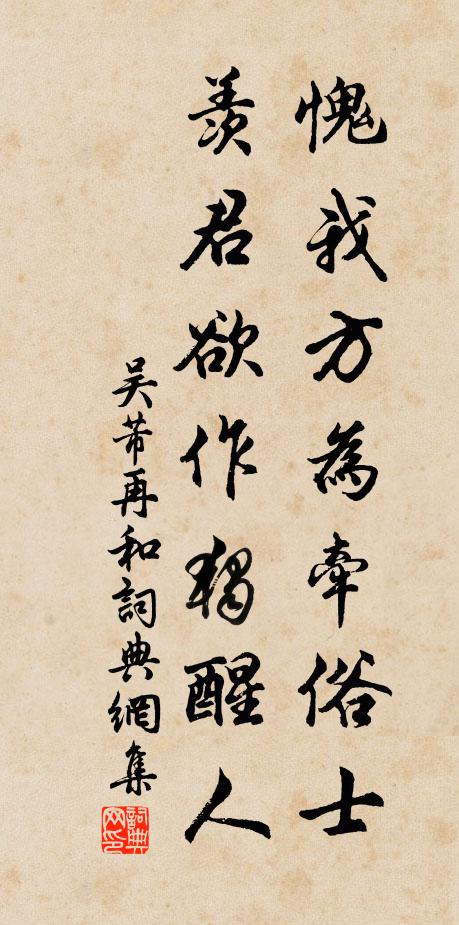 愧我方為牽俗士
羨君欲作獨醒人
吴芾再和詞典網集
詞典网印